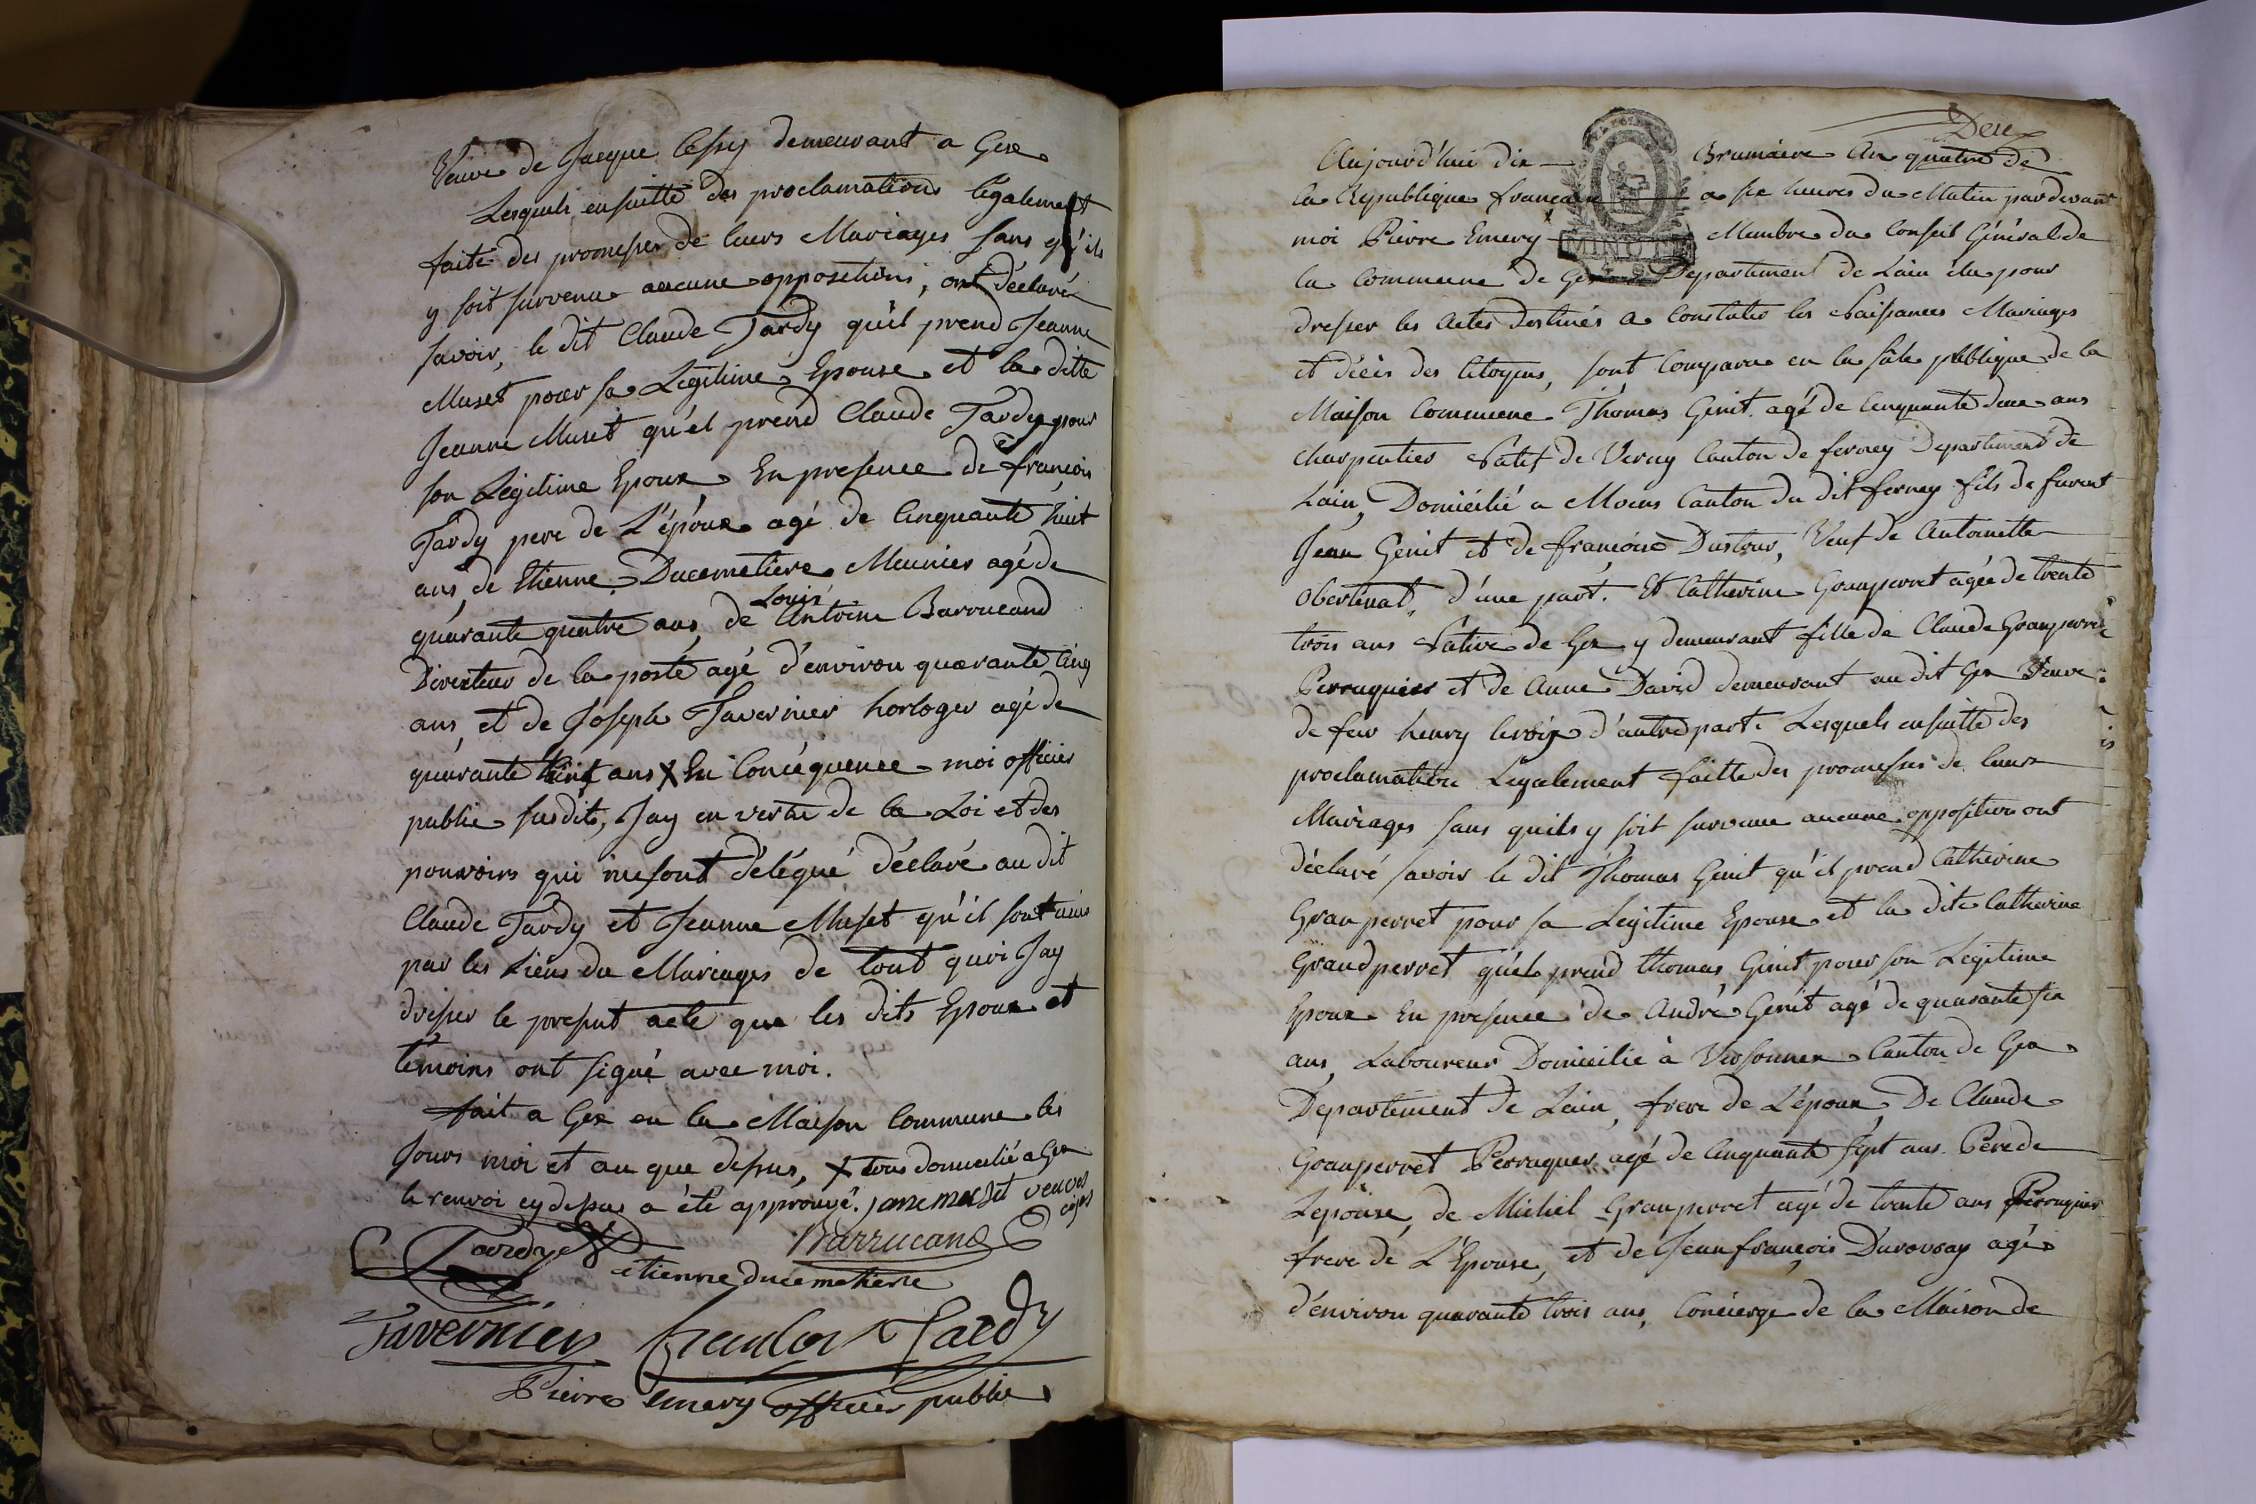 Veuve de Jacque Cessy demeurant a Gex
Lesquels ensuitte des proclamations légalement
faite des promesses de leurs Mariages sans qu'ils
y soit survenue aucune oppositions, ont déclaré
savoir, le dit Claude Tardy qu'il prend Jeanne
Muset pour sa Légitime Epouse et la ditte
Jeanne Muset qu'el prend Claude Tardy pour
son Légitime Epoux En presence de françois
Tardy pere de L'époux agé de Cinquante huit
ans, de Etienne Ducemetiere Meunier agé de
quarante quatre ans, de Louis Antoine Barrucand
Directeur de la poste agé d'environ quarante Cinq
ans, et de Joseph Tavernier horloger agé de
quarante ans X En Conséquence moi officier
public susdits, Jay en vertu de la Loi et des
pouvoirs qui me sont délégué déclaré au dit
Claude Tardy et Jeanne Muset qu'il sont unis
par les Liens du Mariages de tout quoi Jay
dresser le present acte que les dits Epoux et
témoins ont signé avec moi.
fait a Gex en la Maison Commune les
Jours moi et an que dessus, X tous domicilié a Gex
le renvoi cy dessus a été approuvé. jane muset veuve
Tardy Barrucand
etienne ducemetiere
Tavernier francois Tardy
Pierre Emery officier public
Aujourd'hui dix Brumaire An quatre de
la République française a six heures du Matin pardevant
moi Pierre Emery Membre du Conseil Général de
MINUTE
la Commune de Gex Departement de Lain élu pour
dresser les Actes destinés a Constater les Naissances Mariages
et décès des Citoyens, sont Comparu en la sale publique de la
Maison Commune Thomas Genit agé de Cinquante deux ans
charpentier Natif de Verny Canton de ferney Departement de
Lain, Domicilié a Moens Canton du dit ferney fils de furent
Jean Genit et de françoise Dustour, Veuf de Antoinette
Obertinat, d'une part. Et Catherine Granperret agée de trente
trois ans Native de Gex y demeurant fille de Claude Granperret
Perruquier et de Anne David demeurant au dit Gex Veuve
de feu henry d'autre part. Lesquels ensuitte des
proclamation Légalement faitte des promesses de leurs
Mariages sans quils y soit survenue aucune opposition ont
déclaré savoir le dit Thomas Genit qu'il prend Catherine
Granperret pour sa Légitime Epouse et la dite Catherine
Grandperret qu'el prend thomas Genit pour son Légitime
Epoux En presence de André Genit agé de quarante six
ans, Laboureur Domicilié à Vesonnex Canton de Gex
Departement de Lain, frere de L'époux De Claude
Granperret Perruquier agé de Cinquante sept ans Pere de
Lepouse, de Michel Granperret agé de trente ans Perruquier
frere de L'Epouse, et de Jean françois Duvovray agé
d'environ quarante trois ans, Concierge de la Maison de